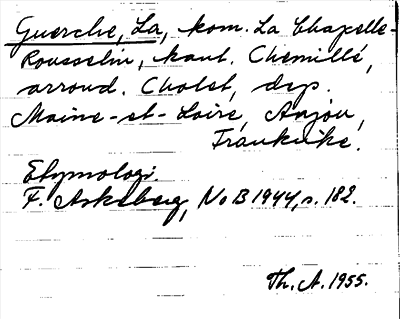 Guerche, La, kom. La Chapelle-
Rousselin, kant. Chemillé,
arrond. Cholet, dep.
Maine-et-Loire, Anjou,
Frankrike.
Etymologi.
F. Askeberg, NoB 1944, s. 182.
Th. A. 1955.